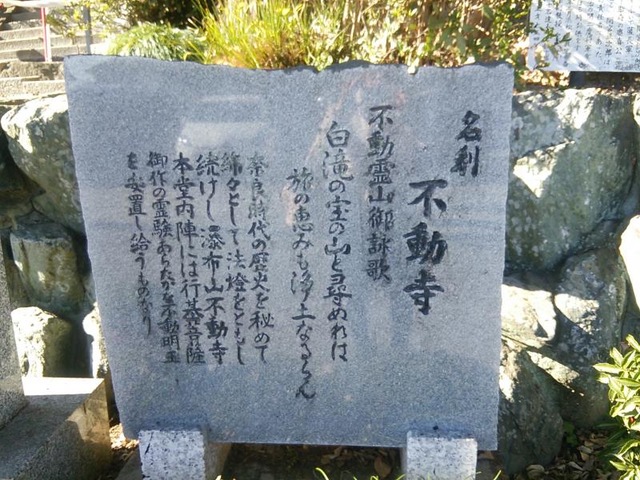 名刹
不動寺
不動霊山御詠歌
白滝の宝の山と尋めれは
旅の恵みも浄土なるらん
奈良時代の歴史を秘めて
綿々として法燈をともし
続けし瀑布山不動寺
本堂内陣には行基菩薩
御作の霊験あらたかな不動明王
を安置し給うものなり